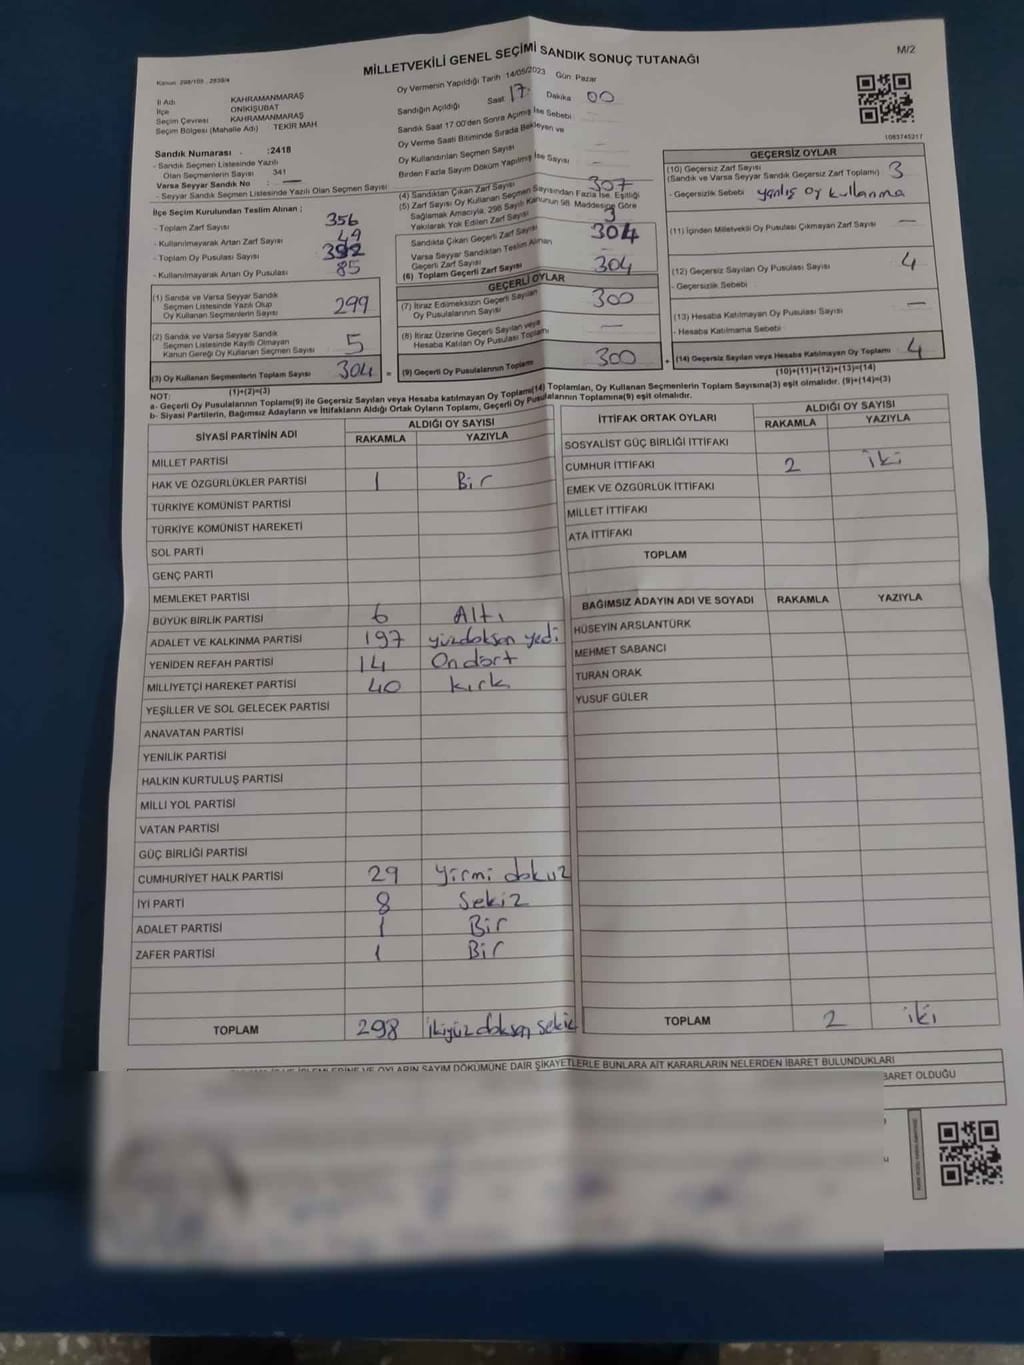 MİLLETVEKİLİ GENEL SEÇİMİ SANDIK SONUÇ TUTANAĞI
M/2
Kanun: 298/105 , 2839/4
İl Adı KAHRAMANMARAŞ
İlçe ONİKİŞUBAT
Seçim Çevresi KAHRAMANMARAŞ
Seçim Bölgesi (Mahalle Adı) TEKİR MAH
Sandık Numarası :2418
- Sandık Seçmen Listesinde Yazılı
Olan Seçmenlerin Sayısı 341
Varsa Seyyar Sandık No : —
- Seyyar Sandık Seçmen Listesinde Yazılı Olan Seçmen Sayısı
İlçe Seçim Kurulundan Teslim Alınan ;
- Toplam Zarf Sayısı 356
- Kullanılmayarak Artan Zarf Sayısı 49
- Toplam Oy Pusulası Sayısı 392
- Kullanılmayarak Artan Oy Pusulası 85
(1) Sandık ve Varsa Seyyar Sandık
Seçmen Listesinde Yazılı Olup
Oy Kullanan Seçmenlerin Sayısı 299
(2) Sandık ve Varsa Seyyar Sandık
Seçmen Listesinde Kayıtlı Olmayan
Kanun Gereği Oy Kullanan Seçmen Sayısı 5
(3) Oy Kullanan Seçmenlerin Toplam Sayısı 304 =
(1)+(2)=(3)
Oy Vermenin Yapıldığı Tarih 14/05/2023 Gün Pazar
Sandığın Açıldığı Saat 17 Dakika 00
Sandık Saat 17:00'den Sonra Açılmış İse Sebebi
Oy Verme Saati Bitiminde Sırada Bekleyen ve
Oy Kullandırılan Seçmen Sayısı —
Birden Fazla Sayım Döküm Yapılmış İse Sayısı —
(4) Sandıktan Çıkan Zarf Sayısı 307
(5) Zarf Sayısı Oy Kullanan Seçmen Sayısından Fazla İse, Eşitliği
Sağlamak Amacıyla, 298 Sayılı Kanunun 98. Maddesine Göre
Yakılarak Yok Edilen Zarf Sayısı 3
Sandıkta Çıkan Geçerli Zarf Sayısı 304
Varsa Seyyar Sandıktan Teslim Alınan
Geçerli Zarf Sayısı
(6) Toplam Geçerli Zarf Sayısı 304
GEÇERLİ OYLAR
(7) İtiraz Edilmeksizin Geçerli Sayılan
Oy Pusulalarının Sayısı 300
(8) İtiraz Üzerine Geçerli Sayılan veya
Hesaba Katılan Oy Pusulası Toplamı —
(9) Geçerli Oy Pusulalarının Toplamı 300 +
1083745217
GEÇERSİZ OYLAR
(10) Geçersiz Zarf Sayısı
(Sandık ve Varsa Seyyar Sandık Geçersiz Zarf Toplamı) 3
- Geçersizlik Sebebi yanlış oy kullanma
(11) İçinden Milletvekili Oy Pusulası Çıkmayan Zarf Sayısı —
(12) Geçersiz Sayılan Oy Pusulası Sayısı 4
- Geçersizlik Sebebi
(13) Hesaba Katılmayan Oy Pusulası Sayısı —
- Hesaba Katılmama Sebebi
(14) Geçersiz Sayılan veya Hesaba Katılmayan Oy Toplamı 4
(10)+(11)+(12)+(13)=(14)
NOT:
a- Geçerli Oy Pusulalarının Toplamı(9) ile Geçersiz Sayılan veya Hesaba katılmayan Oy Toplamı(14) Toplamları, Oy Kullanan Seçmenlerin Toplam Sayısına(3) eşit olmalıdır. (9)+(14)=(3)
b- Siyasi Partilerin, Bağımsız Adayların ve İttifakların Aldığı Ortak Oyların Toplamı, Geçerli Oy Pusulalarının Toplamına(9) eşit olmalıdır.
SİYASİ PARTİNİN ADI ALDIĞI OY SAYISI
RAKAMLA YAZIYLA
MİLLET PARTİSİ
HAK VE ÖZGÜRLÜKLER PARTİSİ 1 Bir
TÜRKİYE KOMÜNİST PARTİSİ
TÜRKİYE KOMÜNİST HAREKETİ
SOL PARTİ
GENÇ PARTİ
MEMLEKET PARTİSİ
BÜYÜK BİRLİK PARTİSİ 6 Altı
ADALET VE KALKINMA PARTİSİ 197 yüzdoksan yedi
YENİDEN REFAH PARTİSİ 14 Ondört
MİLLİYETÇİ HAREKET PARTİSİ 40 kırk
YEŞİLLER VE SOL GELECEK PARTİSİ
ANAVATAN PARTİSİ
YENİLİK PARTİSİ
HALKIN KURTULUŞ PARTİSİ
MİLLİ YOL PARTİSİ
VATAN PARTİSİ
GÜÇ BİRLİĞİ PARTİSİ
CUMHURİYET HALK PARTİSİ 29 Yirmi dokuz
İYİ PARTİ 8 Sekiz
ADALET PARTİSİ 1 Bir
ZAFER PARTİSİ 1 Bir
TOPLAM 298 İkiyüz doksan sekiz
İTTİFAK ORTAK OYLARI ALDIĞI OY SAYISI
RAKAMLA YAZIYLA
SOSYALİST GÜÇ BİRLİĞİ İTTİFAKI
CUMHUR İTTİFAKI 2 iki
EMEK VE ÖZGÜRLÜK İTTİFAKI
MİLLET İTTİFAKI
ATA İTTİFAKI
TOPLAM
BAĞIMSIZ ADAYIN ADI VE SOYADI RAKAMLA YAZIYLA
HÜSEYİN ARSLANTÜRK
MEHMET SABANCI
TURAN ORAK
YUSUF GÜLER
TOPLAM 2 iki
OYLARIN SAYIM DÖKÜMÜNE DAİR ŞİKAYETLERLE BUNLARA AİT KARARLARIN NELERDEN İBARET BULUNDUKLARI
İBARET OLDUĞU